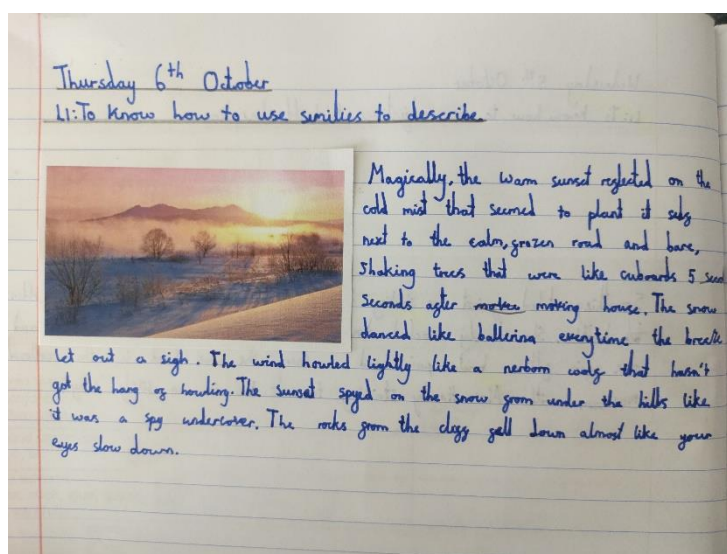 Thursday 6th October
LI: To know how to use similies to describe
Magically, the warm sunset reflected on the
cold mist that seemed to plant it self
next to the calm, frozen road and bare,
shaking trees that were like cuboards 5
seconds after moving house. The snow
danced like ballerina everytime the breeze
let out a sigh. The wind howled lightly like a nerborn wolf that hasn't
got the hang of howling. The sunset spyed on the snow from under the hills like
it was a spy undercover. The rocks from the cliff fell down almost like your
eyes slow down.